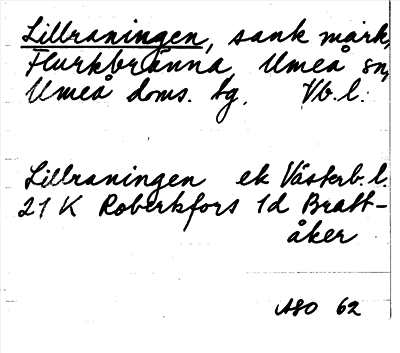 Lillraningen, sank mark,
Flurkbränna, Umeå sn,
Umeå doms. tg, Vb. l.
Lillraningen ek Västerb. l.
21 K Robertsfors 1d Bratt-
åker
ASO 62